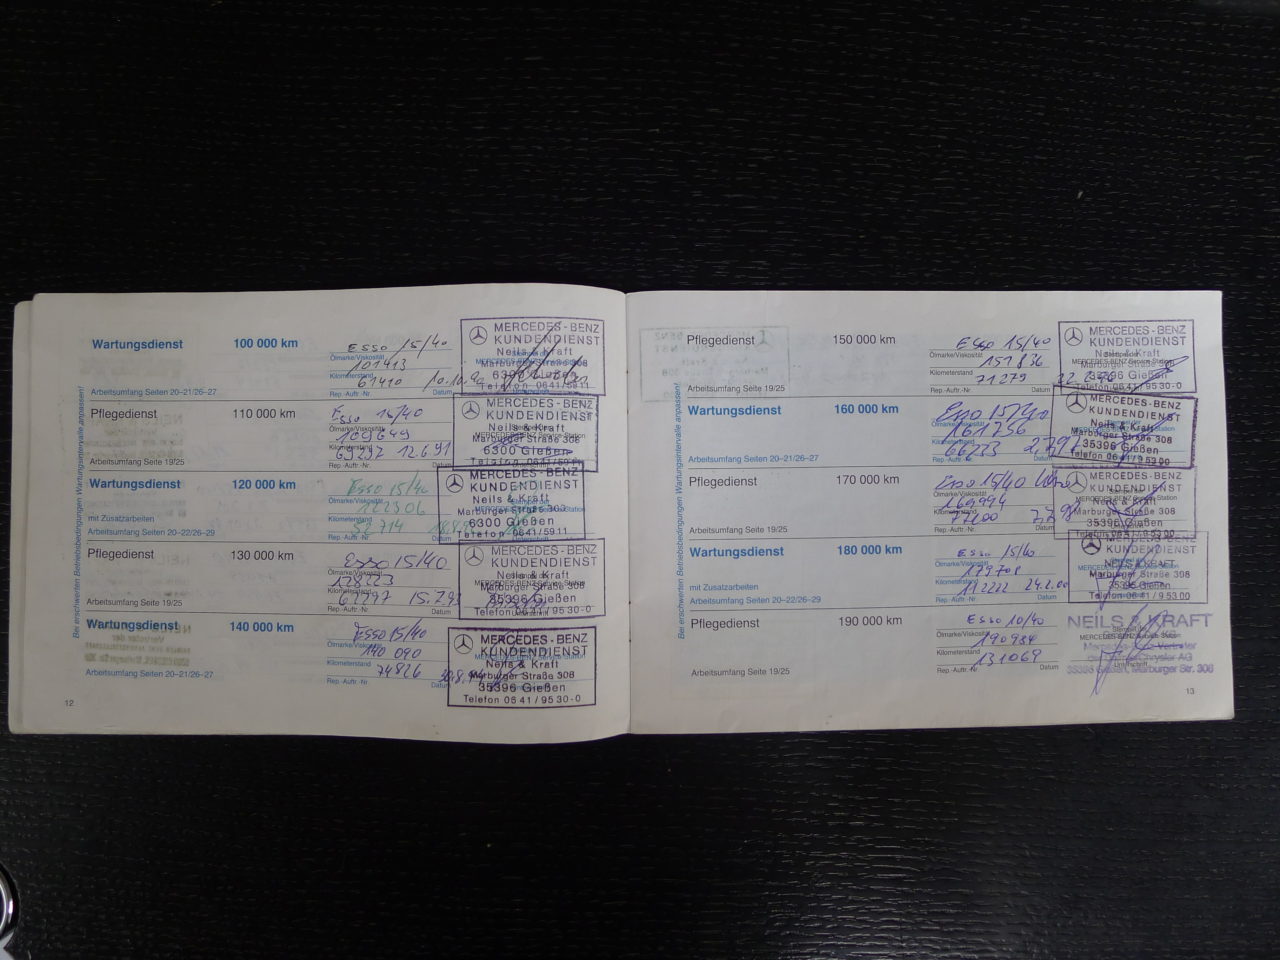 Bei erschwerten Betriebsbedingungen Wartungsintervalle anpassen!
Wartungsdienst 100 000 km
ESSO 15/40
Ölmarke/Viskosität
101413
Kilometerstand
61410
Arbeitsumfang Seiten 20–21/26–27
Rep.-Auftr.-Nr. Datum
MERCEDES-BENZ
KUNDENDIENST
Neils & Kraft
Marburger Straße 308
6300 Gießen
Telefon 0641/5911
Pflegedienst 110 000 km
Esso 15/40
Ölmarke/Viskosität
109649
Kilometerstand
12.6.91
Arbeitsumfang Seite 19/25
Rep.-Auftr.-Nr. Datum
MERCEDES-BENZ
KUNDENDIENST
Neils & Kraft
Marburger Straße 308
6300 Gießen
Telefon 0641/5911
Wartungsdienst 120 000 km
Esso 15/40
Ölmarke/Viskosität
122306
Kilometerstand
52714
mit Zusatzarbeiten
Arbeitsumfang Seiten 20–22/26–29
Rep.-Auftr.-Nr. Datum
MERCEDES-BENZ
KUNDENDIENST
Neils & Kraft
Marburger Straße 308
6300 Gießen
Telefon 0641/5911
Pflegedienst 130 000 km
Esso 15/40
Ölmarke/Viskosität
128223
Kilometerstand
15.7.93
Arbeitsumfang Seite 19/25
Rep.-Auftr.-Nr. Datum
MERCEDES-BENZ
KUNDENDIENST
Neils & Kraft
Marburger Straße 308
35396 Gießen
Telefon 0641/9530-0
Wartungsdienst 140 000 km
Esso 15/40
Ölmarke/Viskosität
140 090
Kilometerstand
74826
Arbeitsumfang Seiten 20–21/26–27
Rep.-Auftr.-Nr. Datum
MERCEDES-BENZ
KUNDENDIENST
Neils & Kraft
Marburger Straße 308
35396 Gießen
Telefon 0641/9530-0
12
Bei erschwerten Betriebsbedingungen Wartungsintervalle anpassen!
Pflegedienst 150 000 km
Esso 15/40
Ölmarke/Viskosität
151836
Kilometerstand
71279
Arbeitsumfang Seite 19/25
Rep.-Auftr.-Nr. Datum
MERCEDES-BENZ
KUNDENDIENST
Neils & Kraft
Marburger Straße 308
35396 Gießen
Telefon 0641/9530-0
Wartungsdienst 160 000 km
Esso 15/40
Ölmarke/Viskosität
161256
Kilometerstand
66223
Arbeitsumfang Seiten 20–21/26–27
Rep.-Auftr.-Nr. Datum
MERCEDES-BENZ
KUNDENDIENST
Neils & Kraft
Marburger Straße 308
35396 Gießen
Telefon 0641/95300
Pflegedienst 170 000 km
Esso 15/40
Ölmarke/Viskosität
169994
Kilometerstand
Arbeitsumfang Seite 19/25
Rep.-Auftr.-Nr. Datum
MERCEDES-BENZ
KUNDENDIENST
Neils & Kraft
Marburger Straße 308
35396 Gießen
Telefon 0641/95300
Wartungsdienst 180 000 km
Esso 15/40
Ölmarke/Viskosität
179708
Kilometerstand
112222 24.2.00
mit Zusatzarbeiten
Arbeitsumfang Seiten 20–22/26–29
Rep.-Auftr.-Nr. Datum
MERCEDES-BENZ
KUNDENDIENST
NEILS & KRAFT
Marburger Straße 308
35396 Gießen
Telefon 0641/95300
Pflegedienst 190 000 km
ESSO 10/40
Ölmarke/Viskosität
190934
Kilometerstand
131069
Arbeitsumfang Seite 19/25
Rep.-Auftr.-Nr. Datum
NEILS & KRAFT
Mercedes-Benz Vertreter
der DaimlerChrysler AG
35396 Gießen, Marburger Str. 306
13